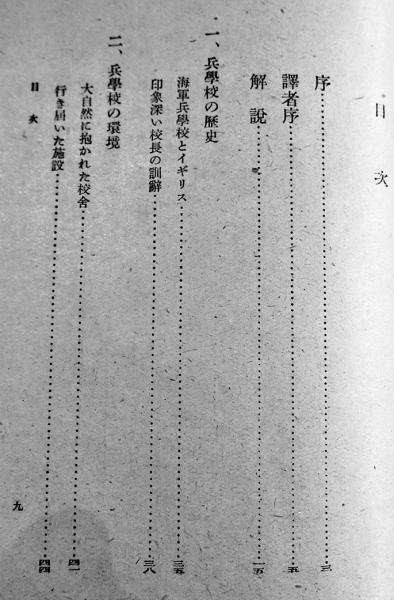 目次
序……三
譯者序……五
解說……一五
一、兵學校の歷史
海軍兵學校とイギリス……三五
印象深い校長の訓辭……三八
二、兵學校の環境
大自然に抱かれた校舍……四一
行き屆いた施設……四四
目次
九